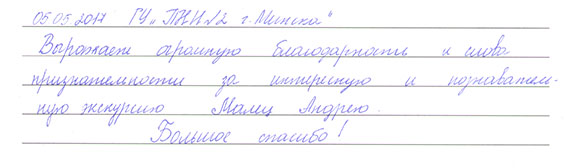 05.05.2017 ГУ "ПНИ№2 г. Минска"
Выражаем огромную благодарность и слова
признательности за интересную и познаватель-
ную экскурсию Малец Андрею.
Большое спасибо!